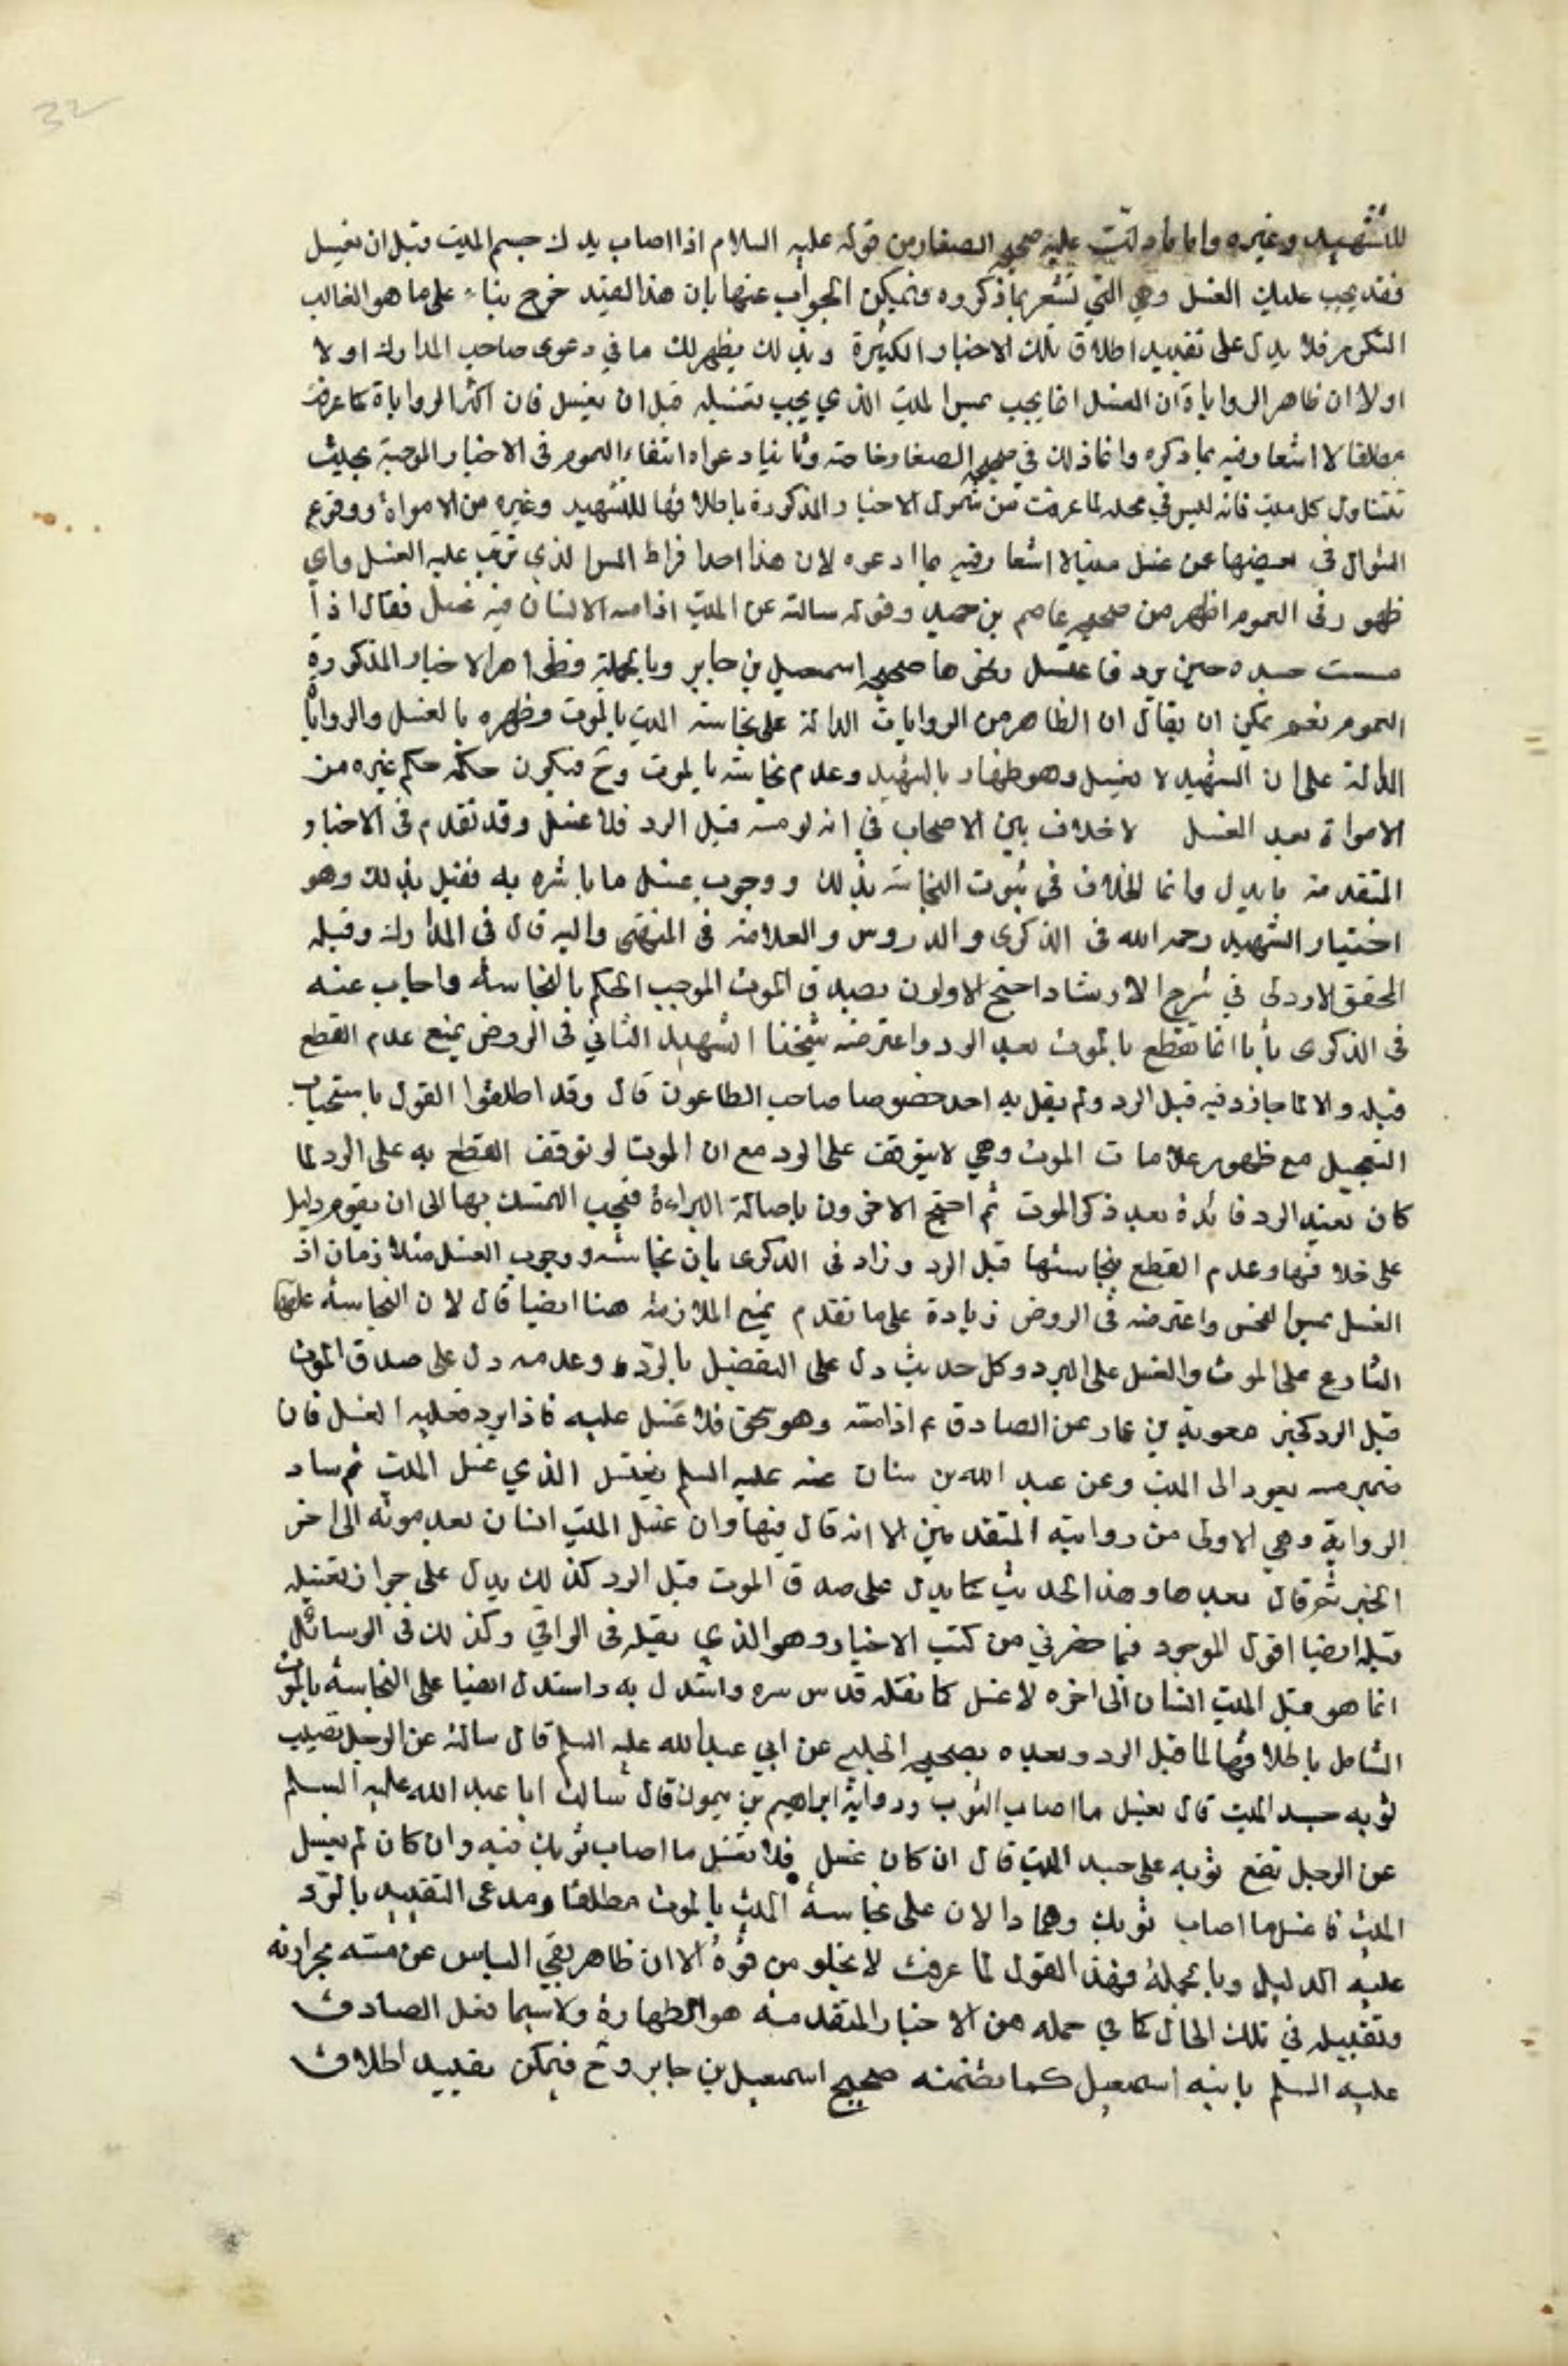 32
للشهيد وغيره واما ما دلت عليه صحيح الصفار من قوله عليه السلام اذا اصاب يدك جسم الميت قبل ان يغسل
فقد يجب عليك الغسل وهي التي تشعر بما ذكروه ويمكن الجواب عنها بان هذا القيد خرج بناء على ما هو الغالب
المتكرر فلا يدل على تقييد اطلاق تلك الاخبار الكثيرة وبذلك يظهر لك ما في دعوى صاحب المدارك اولا
اولا ان ظاهر الروايات ان الغسل انما يجب بمس الميت الذي يجب تغسيله قبل ان يغسل فان اكثر الروايات كما عرفت
مطلقا لا اشعار فيه بما ذكره وانما ذلك في صحيح الصفار خاصة وثانيا دعواه انتفاء العموم في الاخبار الموجبة بحيث
تتناول كل ميت فانه ليس في محله لما عرفت من شمول الاخبار المذكورة باطلاقها للشهيد وغيره من الاموات ووقوع
السؤال في بعضها عن غسل ميت لا اشعار فيه بما ادعوه لان هذا احد افراط المس الذي ترتب عليه الغسل واي
ظهور في العموم اظهر من صحيح عاصم بن حميد وقوله سالته عن الميت اذا مسه الانسان فيه غسل فقال اذا
مسست جسده حين برد فاغتسل ونحوها صحيح اسمعيل بن جابر وبالجملة فظواهر الاخبار المذكورة
العموم نعم يمكن ان يقال ان الظاهر من الروايات الدالة على نجاسة الميت بالموت وطهره بالغسل والروايات
الدالة على ان الشهيد لا يغسل وهو طهارة الشهيد وعدم نجاسته بالموت وح فيكون حكمه حكم غيره من
الاموات بعد الغسل لا خلاف بين الاصحاب في انه لو مسه قبل البرد فلا غسل وقد تقدم في الاخبار
المتقدمة ما يدل وانما الخلاف في ثبوت النجاسة بذلك ووجوب غسل ما باشره به فقيل بذلك وهو
اختيار الشهيد رحمه الله في الذكرى والدروس والعلامة في المنتهى واليه قال في المدارك وقبله
المحقق الاردلى في شرح الارشاد احتج الاولون بصدق الموت الموجب الحكم بالنجاسة واجاب عنه
في الذكرى بأنا انما نقطع بالموت بعد البرد واعترضه شيخنا الشهيد الثاني في الروض بمنع عدم القطع
قبله والا لما جاز دفنه قبل البرد ولم يقل به احد خصوصا صاحب الطاعون قال وقد اطلقوا القول باستحباب
التعجيل مع ظهور علامات الموت وهي لا يتوقف على البرد مع ان الموت لو توقف القطع به على البرد لما
كان لقيد البرد فائدة بعد ذكر الموت ثم احتج الاخرون باصالة البراءة فيجب التمسك بها الى ان يقوم دليل
على خلافها وعدم القطع بنجاستها قبل البرد وزاد في الذكرى بان نجاسته ووجوب الغسل متلازمان اذ
الغسل بمس النجس واعترضه في الروض زيادة على ما تقدم بمنع الملازمة هنا ايضا قال لان النجاسة علقها
الشارع على الموت والغسل على البرد وكل حديث دل على التفصيل بالبرد وعدمه دل على صدق الموت
قبل البرد كخبر معوية بن عمار عن الصادق ع اذا مسته وهو سخن فلا غسل عليه فاذا برد فعليه الغسل فان
ضمير مسه يعود الى الميت وعن عبد الله بن سنان عنه عليه السلم يغتسل الذي غسل الميت ثم ساد
الرواية وهي الاولى من روايتيه المتقدمتين الا انه قال فيها وان غسل الميت انسان بعد موته الى اخر
الخبر ثم قال بعدها وهذا الحديث كما يدل على صدق الموت قبل البرد كذلك يدل على جواز تغسيله
قبله ايضا اقول الموجود فيما حضرني من كتب الاخبار وهو الذي نقله في الوافي وكذلك في الوسائل
انما هو قبل الميت انسان الى اخره لا غسل كما نقله قدس سره واستدل به واستدل ايضا على النجاسة بالموت
الشامل باطلاقها لما قبل البرد وبعده بصحيح الحلبي عن ابي عبد الله عليه السلم قال سالته عن الرجل يصيب
ثوبه جسد الميت قال يغسل ما اصاب الثوب ورواية ابراهيم بن ميمون قال سالت ابا عبد الله عليه السلم
عن الرجل تقع ثوبه على جسد الميت قال ان كان غسل فلا تغسل ما اصاب ثوبك فيه وان كان لم يغسل
الميت فاغسل ما اصاب ثوبك وهما دالان على نجاسة الميت بالموت مطلقا ومدعى التقييد بالبرد
عليه الدليل وبالجملة فهذا القول لما عرفت لا يخلو من قوة الا ان ظاهر نفي الباس عن مسه بحرارته
وتقبيله في تلك الحال كما في جمله من الاخبار المتقدمة هو الطهارة ولا سيما فعل الصادق
عليه السلم بابنه اسمعيل كما تضمنته صحيح اسمعيل بن جابر وح فيمكن تقييد اطلاق